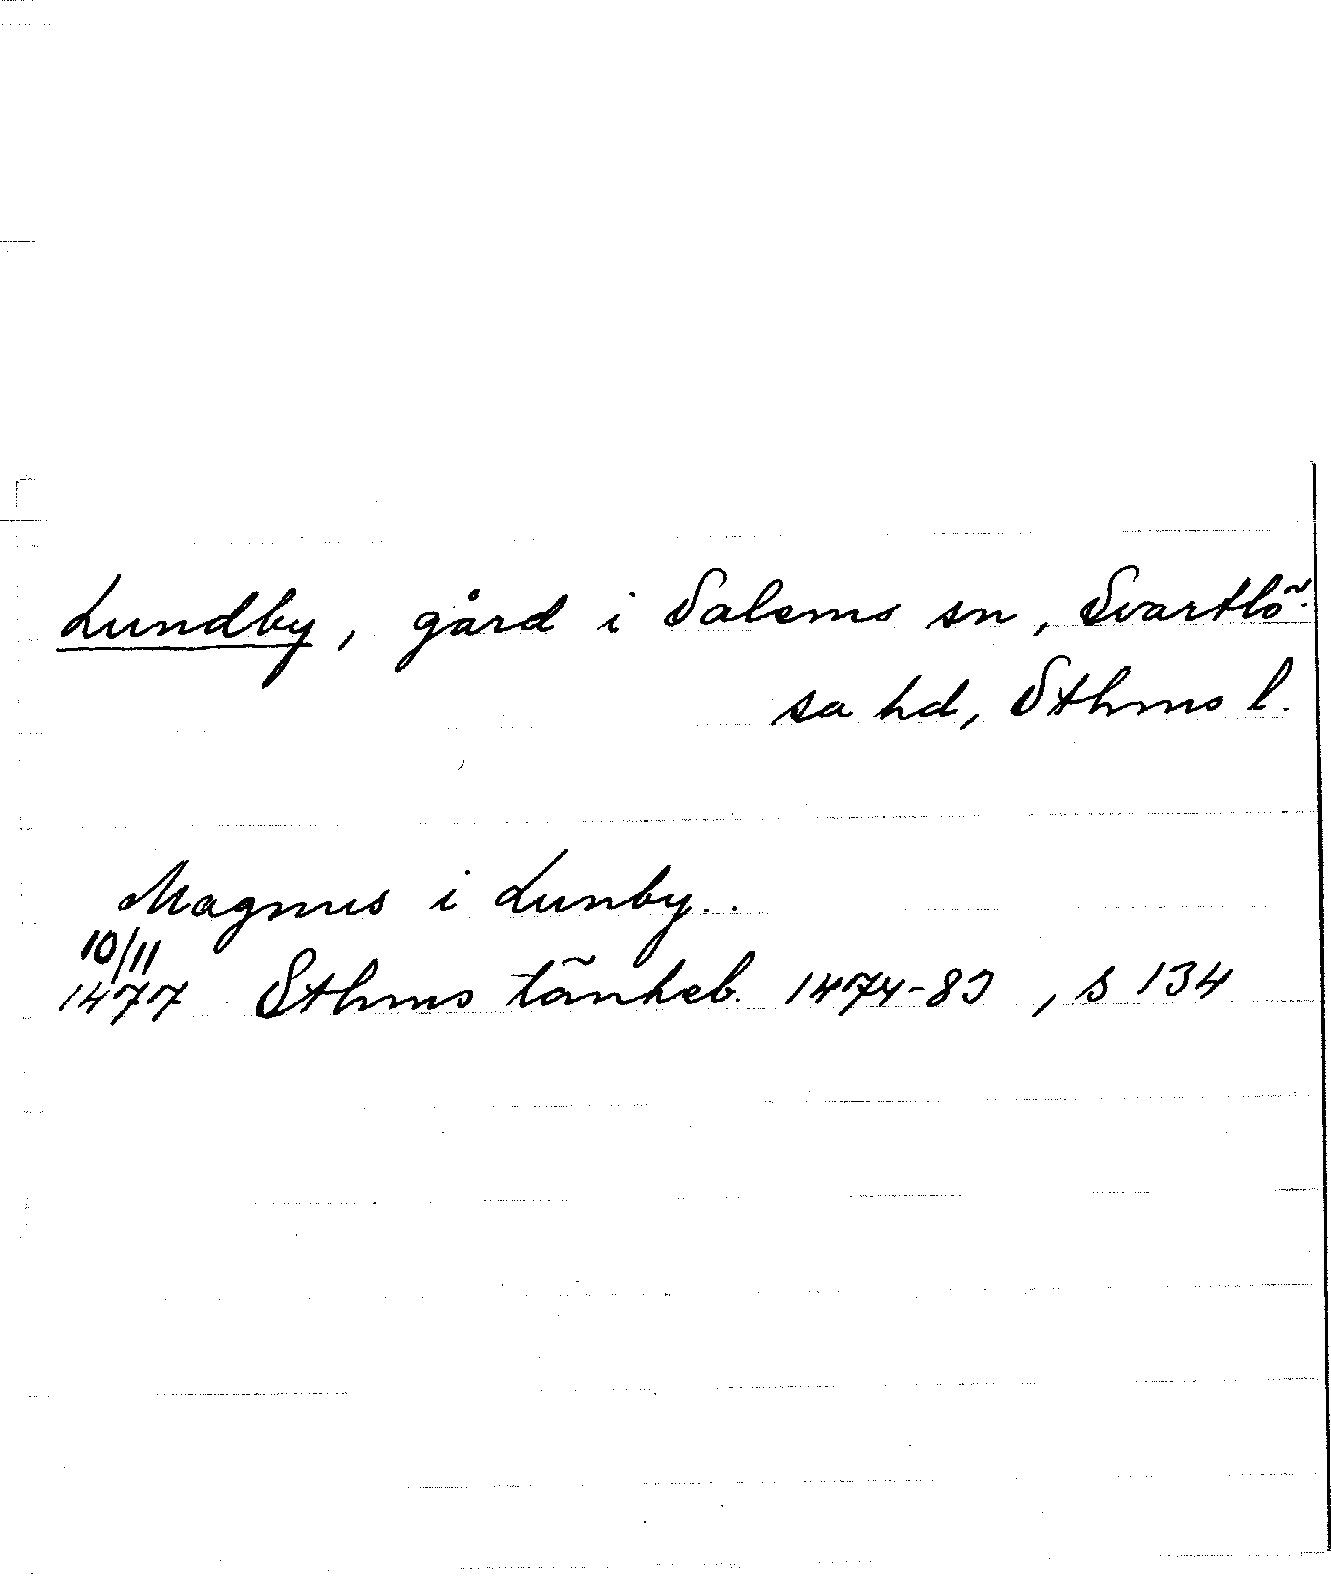 Lundby, gård i Salems sn, Svartlö-
sa hd, Sthms l.
Magnus i Lunby..
10/11
1477 Sthms tänkeb. 1474-83, s 134